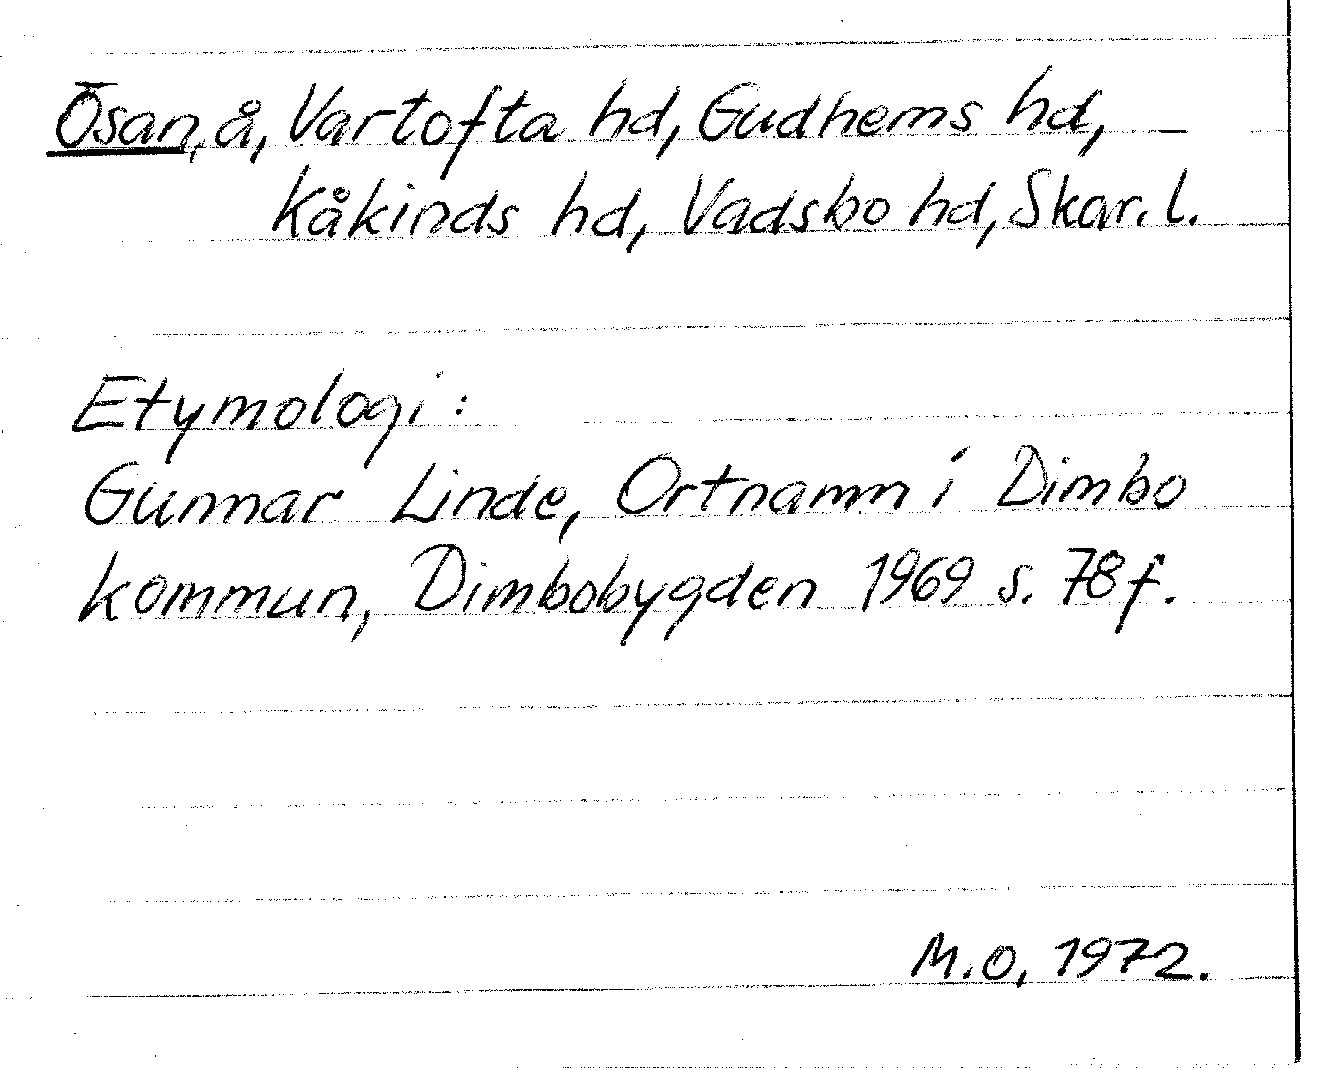 Ösan, å, Vartofta hd, Gudhems hd, –
Kåkinds hd, Vadsbo hd, Skar. l.
Etymologi:
Gunnar Linde, Ortnamn i Dimbo
kommun, Dimbobygden 1969 s. 78f.
M.O, 1972.